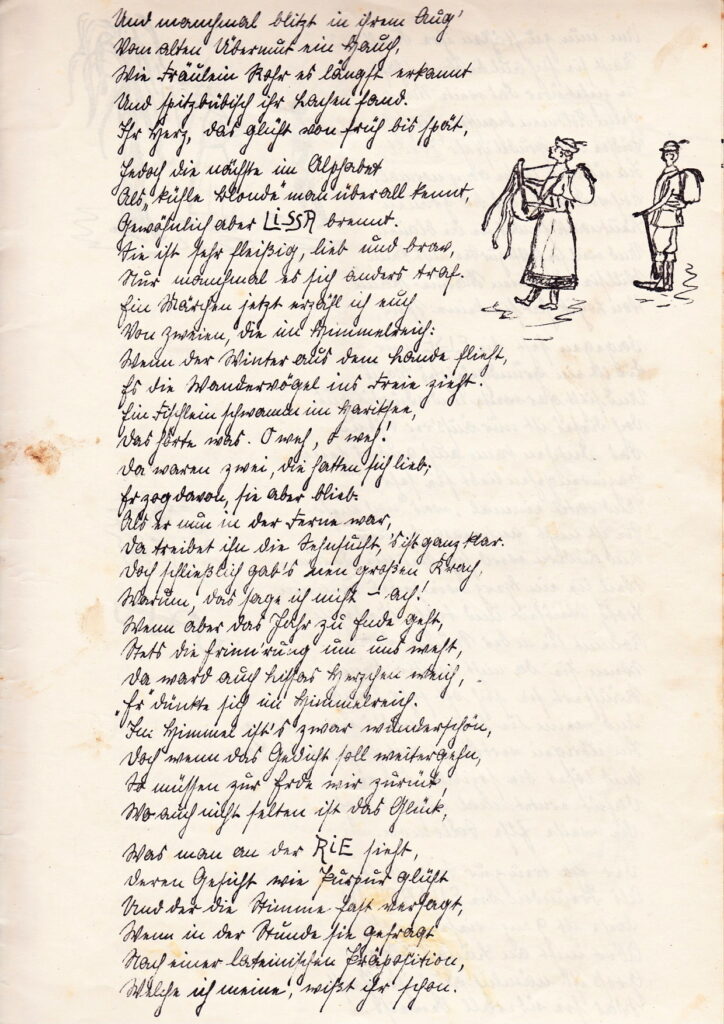 Und manchmal blitzt in ihrem Aug'
Vom alten Übermut ein Hauch,
Wie Fräulein Rohr es längst erkannt
Und spitzbübisch ihr Lachen fand.
Ihr Herz, das glüht von früh bis spät,
Jedoch die nächste im Alphabet
Als „kühle Blonde" man überall kennt,
Gewöhnlich aber LISSA brennt.
Sie ist sehr fleißig, lieb und brav,
Nur manchmal es sich anders traf.
Ein Märchen jetzt erzähl ich euch
Von zweien, die im Himmelreich:
Wenn der Winter aus dem Lande flieht,
Es die Wandervögel ins Freie zieht.
Ein Fischlein schwamm im Hariksee,
Das hörte was. O weh, o weh!
Da waren zwei, die hatten sich lieb;
Er zog davon, sie aber blieb.
Als er nun in der Ferne war,
Da treibet ihn die Sehnsucht, 's ist ganz klar.
Doch schließlich gab's nen großen Krach,
Warum, das sage ich nicht – ach!
Wenn aber das Jahr zu Ende geht,
Stets die Erinn'rung um uns weht,
Da ward auch Lissas Herzchen weich,
„Er" dünkte sich im Himmelreich.
Im Himmel ist's zwar wunderschön,
Doch wenn das Gedicht soll weitergehn,
So müssen zur Erde wir zurück,
Wo auch nicht selten ist das Glück,
Was man an der RIE sieht,
Deren Gesicht wie Purpur glüht
Und der die Stimme fast versagt,
Wenn in der Stunde sie gefragt
Nach einer lateinischen Präposition,
Welche ich meine, wißt ihr schon.